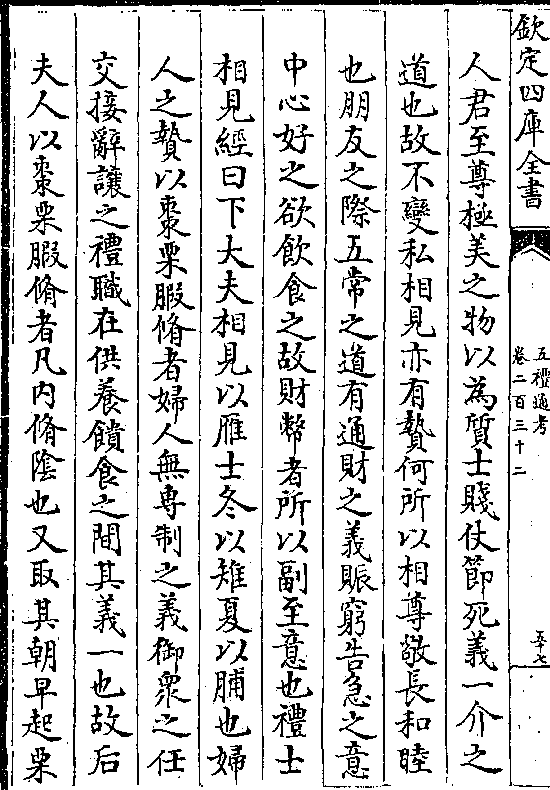 欽定四庫全書
五禮通考
卷二百三十二
五十七
人君至尊極美之物以為質士賤仗節死義一介之
道也故不變私相見亦有贄何所以相尊敬長和睦
也朋友之際五常之道有通財之義賑窮告急之意
中心好之欲飲食之故財幣者所以副至意也禮士
相見經曰下大夫相見以雁士冬以雉夏以脯也婦
人之贄以棗栗腶脩者婦人無専制之義御衆之任
交接辭讓之禮職在供養饋食之間其義一也故后
夫人以棗栗腶脩者凡内脩陰也又取其朝早起栗